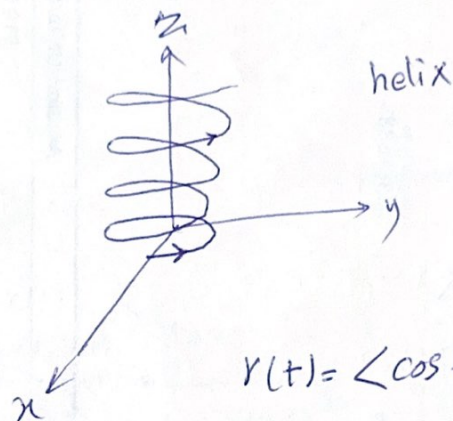 z
helix
y
r(t) = <cos
x